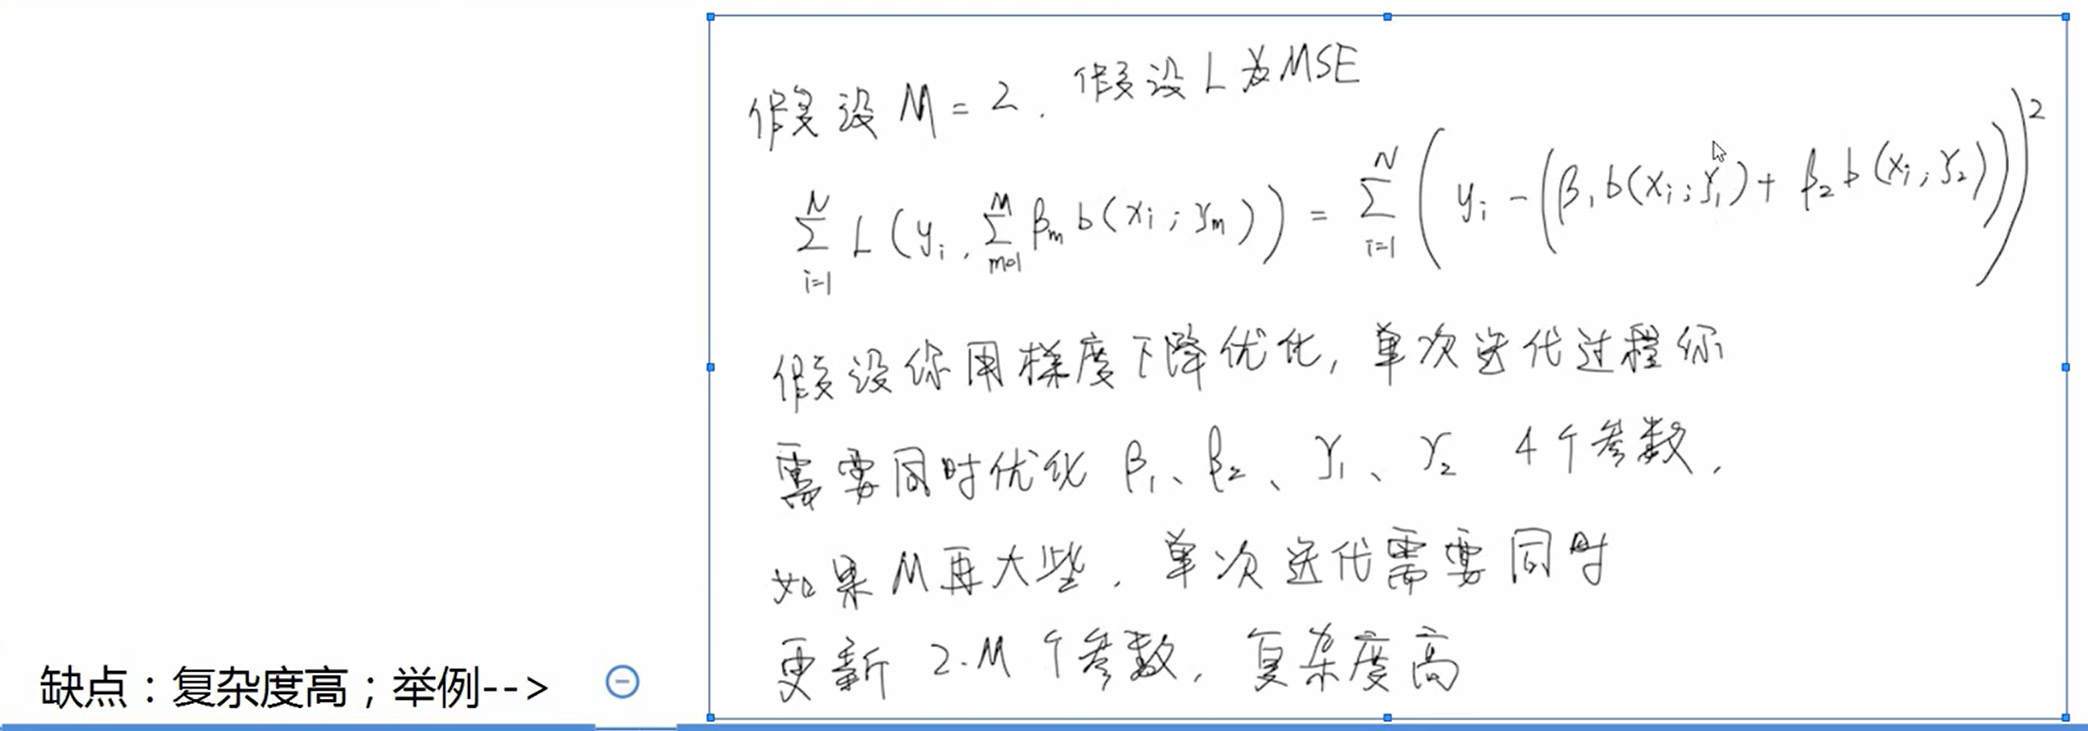 假设M=2. 假设L为MSE
\sum_{i=1}^{N} L(y_i, \sum_{m=1}^{M} β_m b(x_i; γ_m)) = \sum_{i=1}^{N} (y_i - (β_1 b(x_i; γ_1) + β_2 b(x_i; γ_2)))^2
假设你用梯度下降优化, 单次迭代过程你
需要同时优化 β_1、β_2、γ_1、γ_2 4个参数,
如果M再大些, 单次迭代需要同时
更新 2·M个参数, 复杂度高
缺点：复杂度高；举例-->